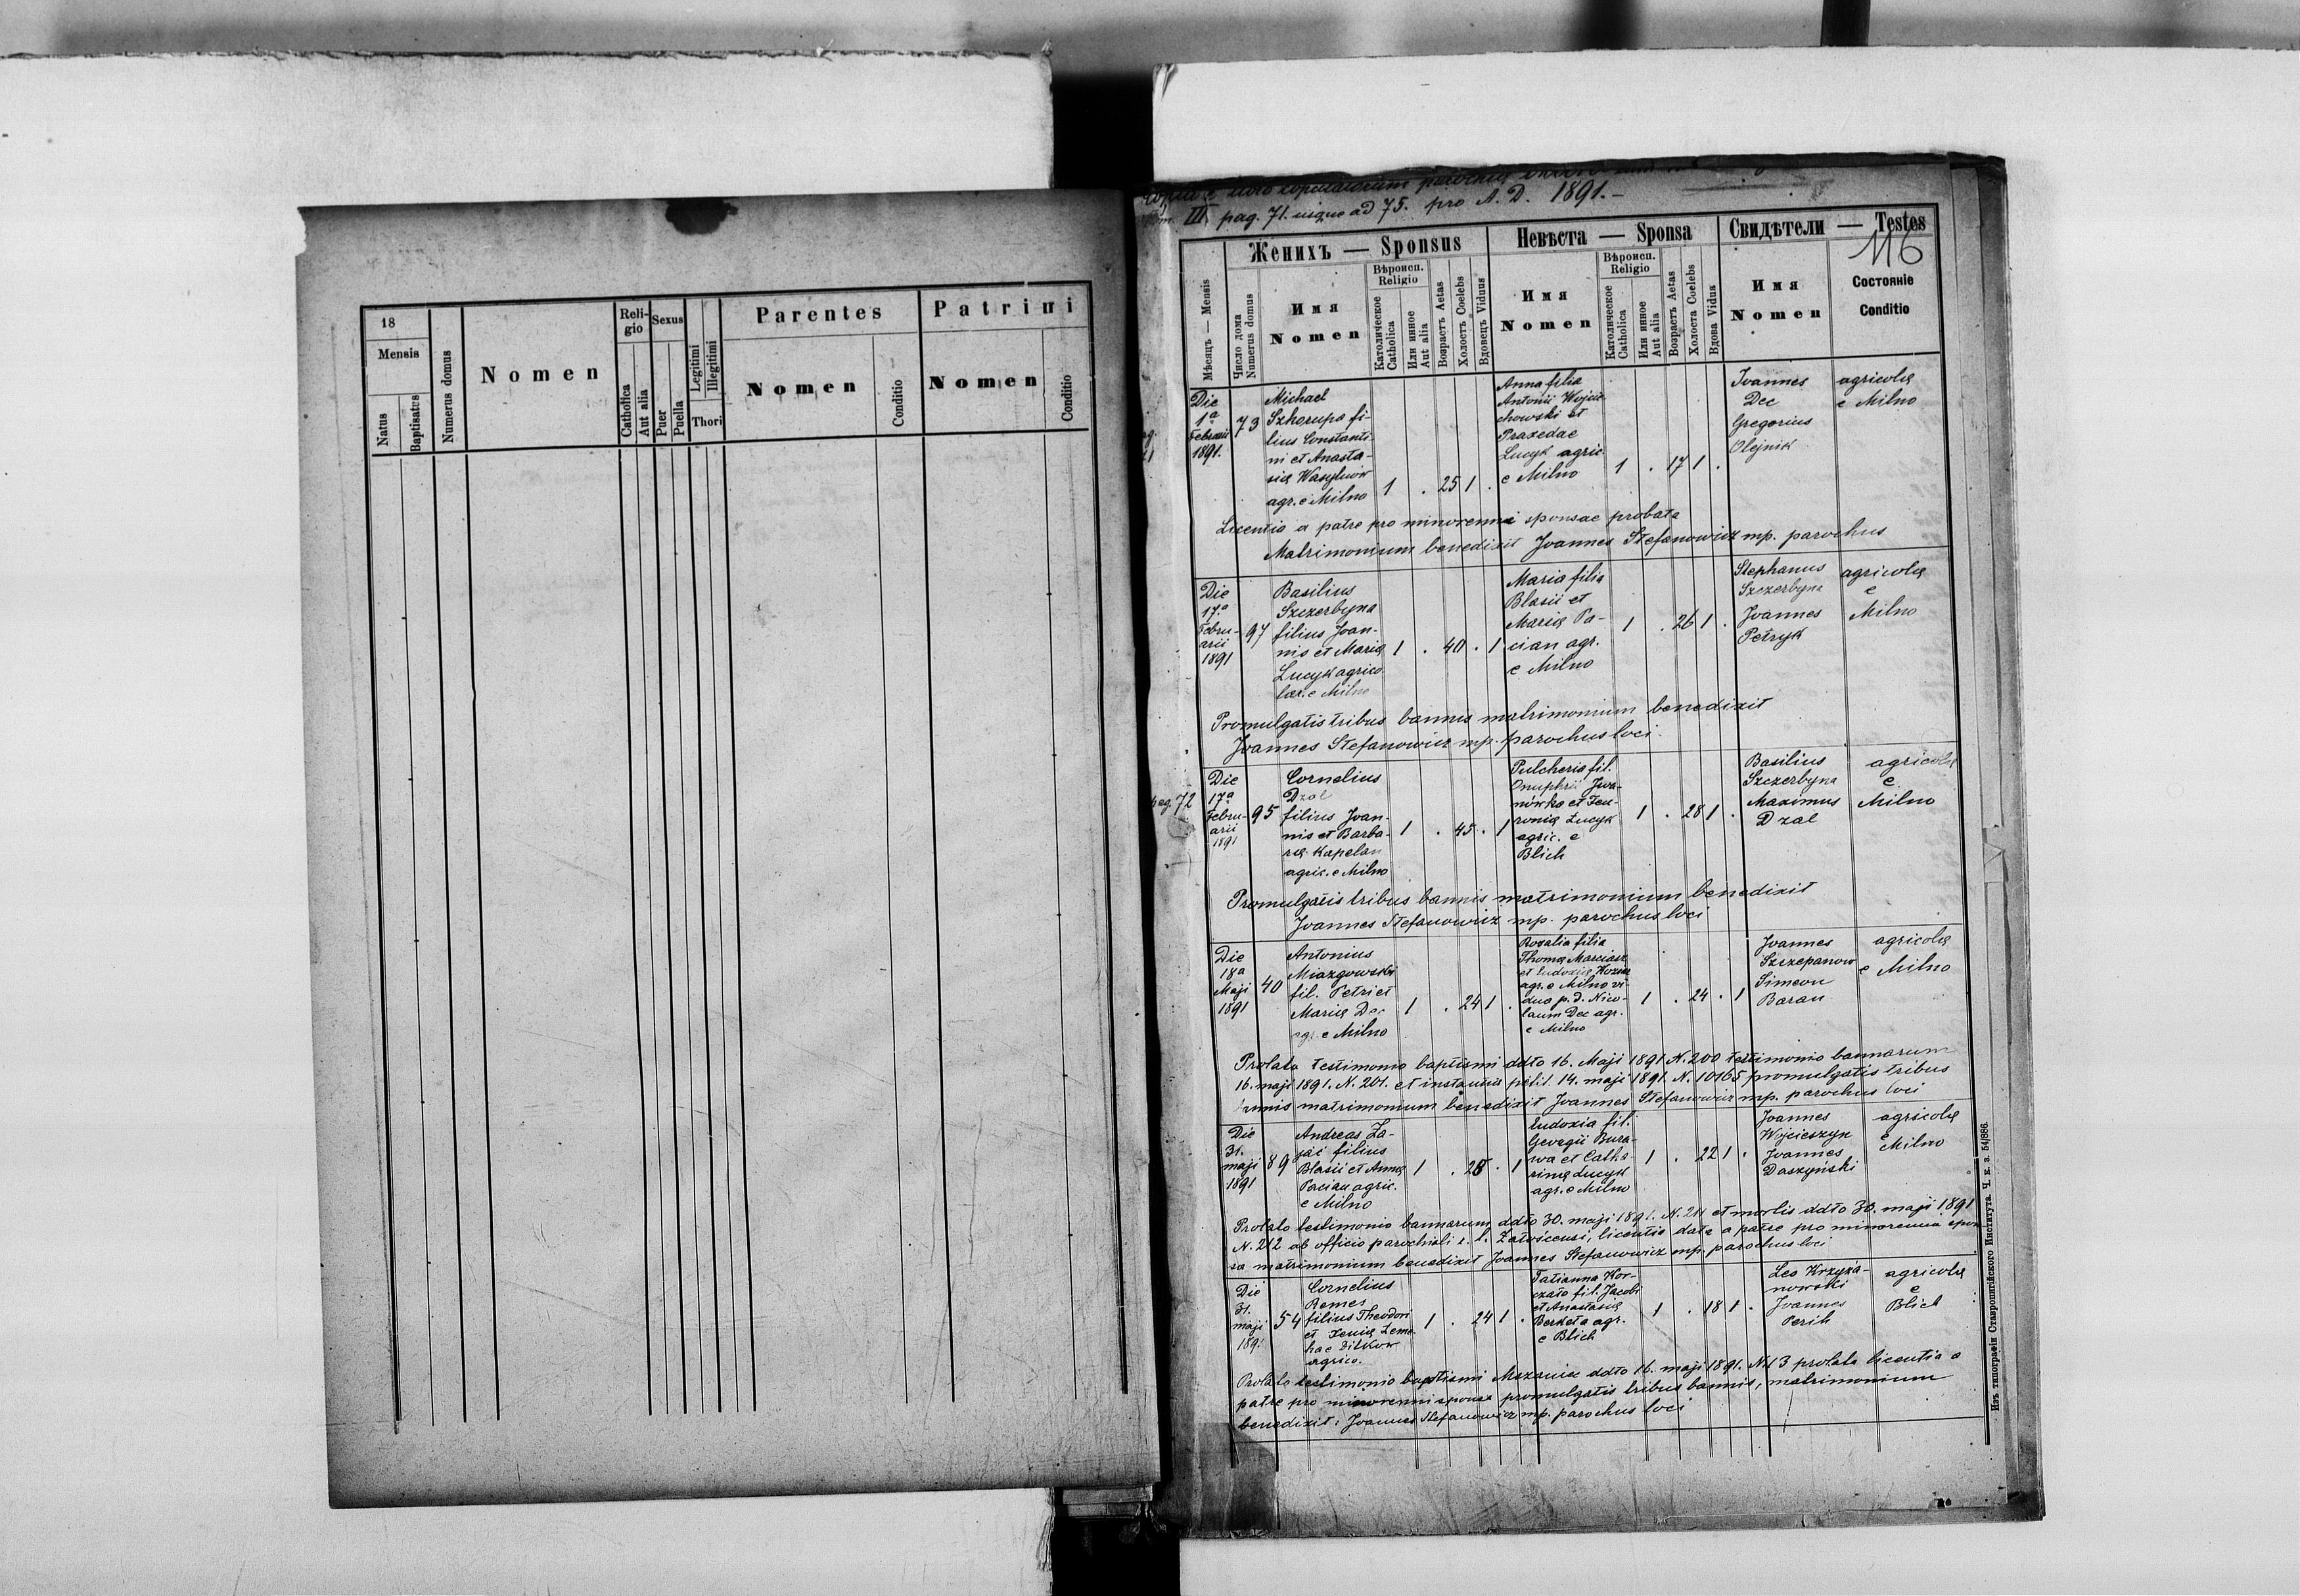 18
Mensis
Natus
Baptisatus
Numerus domus
Nomen
Reli-
gio
Catholica
Aut alia
Sexus
Puer
Puella
Legitimi
Illegitimi
Thori
Parentes
Nomen
Conditio
Patrini
Nomen
Conditio
III pag. 71. usque ad 75. pro A. D. 1891.-
116
Женихъ — Sponsus
Невѣста — Sponsa
Свидѣтели — Testes
Мѣсяцъ — Mensis
Число дома
Numerus domus
Имя
Nomen
Вѣроисп.
Religio
Католическое
Catholica
Или инное
Aut alia
Возрастъ Aetas
Холостъ Coelebs
Вдовецъ Viduus
Имя
Nomen
Вѣроисп.
Religio
Католическое
Catholica
Или инное
Aut alia
Возрастъ Aetas
Холоста Coelebs
Вдова Vidus
Имя
Nomen
Состояніе
Conditio
Die
1ª
Februarii
1891.
73
Michael
Szkarupa fi-
lius Constanti-
ni et Anasta-
siæ Wasylków
agr. e Milno
1 . 25 1 .
Anna filia
Antonii Wojcie-
chowski et
Praxedae
Lucyk agric.
e Milno
1 . 17 1 .
Joannes
Dec
Gregorius
Olejnik
agricolæ
e Milno
Licentia a patre pro minorenni sponsae probata
Matrimonium benedixit Joannes Stefanowicz mp. parochus
Die
17.ª
Febru-
arii
1891
97
Basilius
Szczerbyna
filius Joan-
nis et Mariæ
Lucyk agrico
lar. e Milno
1 . 40 . 1
Maria filia
Blasii et
Mariæ Pa-
cian agr.
e Milno
1 . 26 1 .
Stephanus
Szczerbyna
Joannes
Petryk
agricolæ
e
Milno
Promulgatis tribus bannis matrimonium benedixit
Joannes Stefanowicz mp. parochus loci
pag. 72
Die
17ª
Febru-
arii
1891
95
Cornelius
Dzal
filius Joan-
nis et Barba-
ræ Kapelan
agric. e Milno
1 . 45 . 1
Pulcheria fil.
Onuphrii Iwa-
nówka et Feu-
roniæ Łucyk
agric. e
Blich
1 . 28 1 .
Basilius
Szczerbyna
Maximus
Dzal
agricolæ
e
Milno
Promulgatis tribus bannis matrimonium benedixit
Joannes Stefanowicz mp. parochus loci
Die
18ª
Maji
1891
40
Antonius
Miazgowski
fil. Petri et
Mariæ Dec
agr. e Milno
1 . 24 1 .
Rosalia filia
Thomæ Marciasz
et Eudoxiæ
agr. e Milno vi
dua p. d. Nico-
laum Dec agr.
e Milno
1 . 24 . 1
Joannes
Szczepanow
Simeon
Baran
agricolæ
e Milno
Prolato testimonio baptismi ddto 16. Maji 1891 N. 200 testimonio bannarum
16. maji 1891. N. 201. et instantiis 14. maji 1891. N. 10165 promulgatis tribus
bannis matrimonium benedixit Joannes Stefanowicz mp. parochus loci
Die
31.
maji
1891
89
Andreas Za-
jać filius
Blasii et Annæ
Pacian agric.
e Milno
1 . 28 . 1
Eudoxia fil.
Georgii Bura-
wa et Catha-
rinæ Lucyk
agr. e Milno
1 . 22 1 .
Joannes
Wojcieszyn
Joannes
Daszyński
agricolæ
e
Milno
Prolato testimonio bannarum ddto 30. maji 1891. N. 211 et mortis ddto 30. maji 1891
N. 212 ab officio parochiali r. l. Załoścensi, licentia data a patre pro minorenna spon-
sa matrimonium benedixit Joannes Stefanowicz mp. parochus loci
Die
31.
maji
1891
54
Cornelius
Remes
filius Theodori
et Xeniæ
agrico.
1 . 24 1 .
Tatianna Kor-
czało fil. Jacobi
et Anastasiæ
Berketa agr.
e Blich
1 . 18 1 .
Leo Krzyża-
nowski
Joannes
Perih
agricolæ
e
Blich
Prolato testimonio baptismi ddto 16. maji 1891. N. 13 prolata licentia a
patre pro minorenni sponsa promulgatis tribus bannis, matrimonium
benedixit: Joannes Stefanowicz mp. parochus loci
Изъ типографіи Ставропигійского Института. Ч. к. а. 54/886.